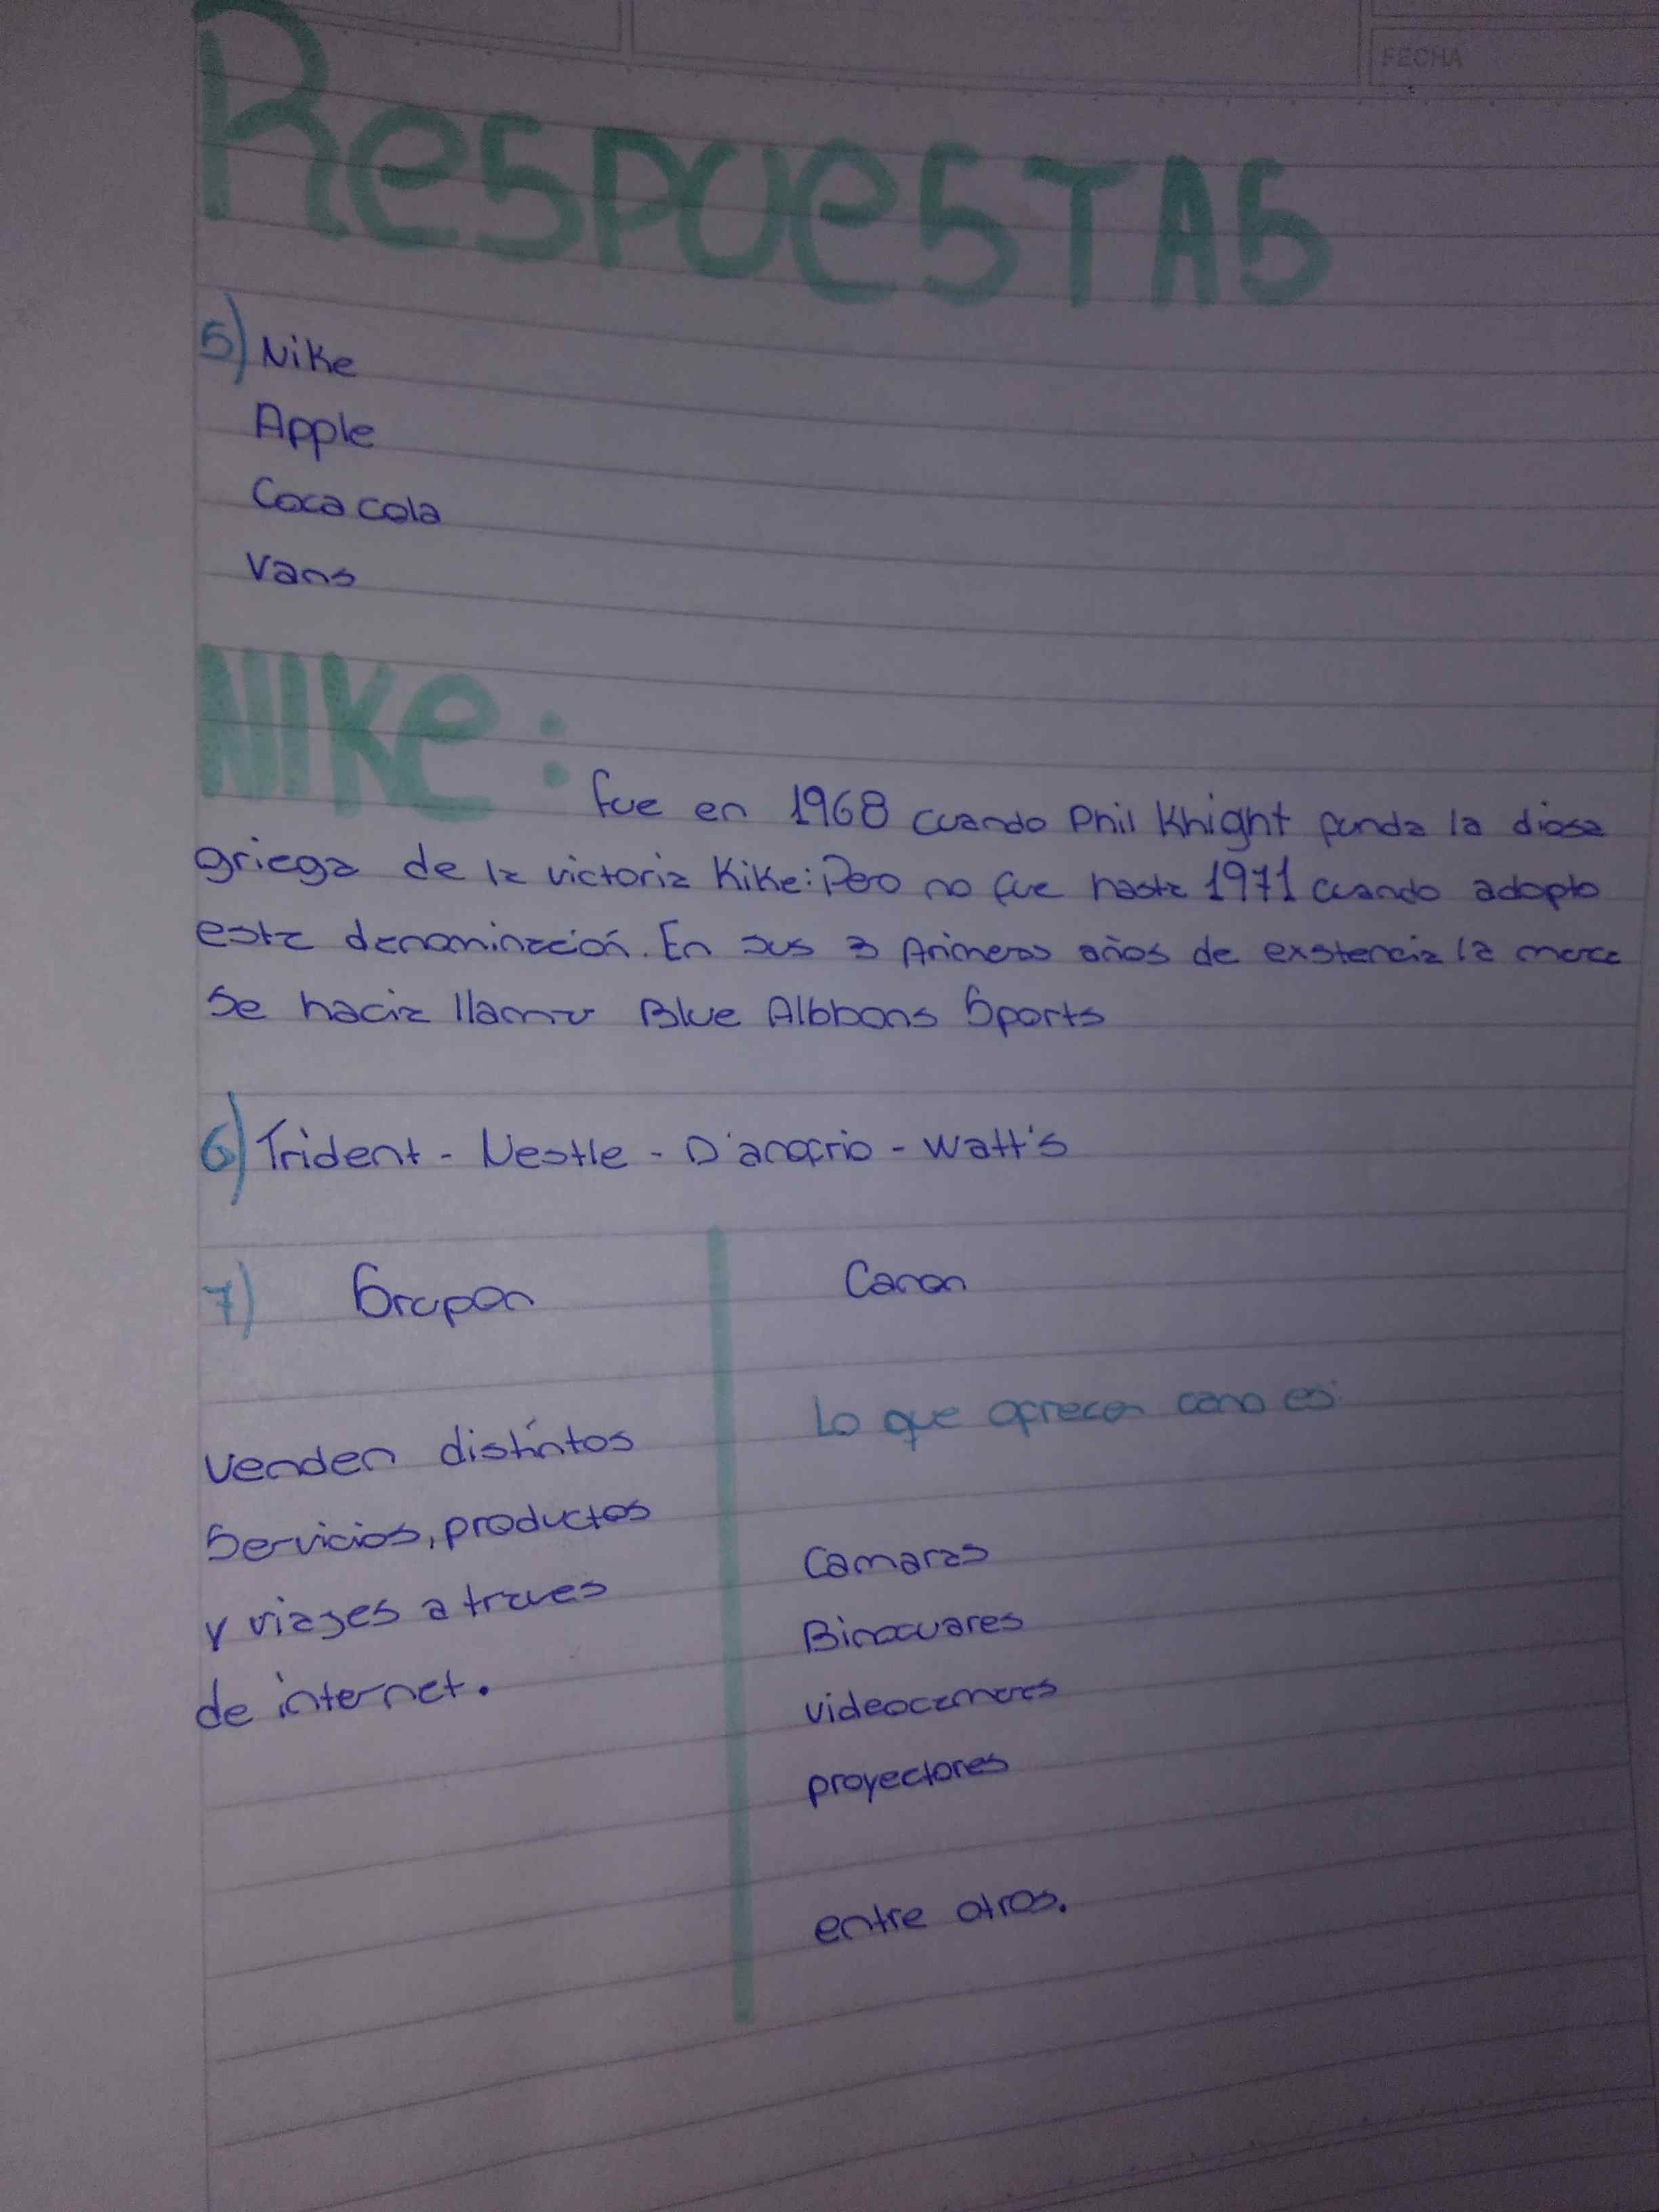 FECHA
ResPUesTAS
5) Nike
Apple
Coca cola
Vans
NIKe:
fue en 1968 cuando Phil Khight funda la diosa
griega de la victoria Kike: Pero no fue hasta 1971 cuando adopto
esta denominación. En sus 3 Primeros años de existencia la marca
Se hacia llamar Blue Albbons Sports
6) Trident - Nestle - D'anofrio - Watt's
7) Grupon
Canon
Lo que ofrecen como es:
Venden distintos
Servicios, productos
y viajes a traves
de internet.
Camaras
Binocuares
videocamaras
proyectores
entre otros.